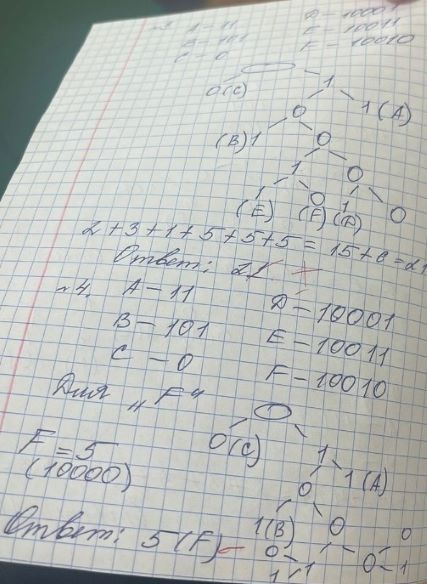 A - 11 D - 10001
B - 101 E - 10011
C - 0 F - 10010
0(C) 1
0 1(A)
(B)1 0
1 0
1 0 1 0
(E) (F) (A)
2+3+1+5+5+5 = 15+6=21
Ответ: 21
№4. A - 11 D - 10001
B - 101 E - 10011
C - 0 F - 10010
Для „F“
0(C) 1
F = 5 0 1(A)
(10000) 1(B) 0
Ответ: 5(F) 0 1 0 0
1 1 1